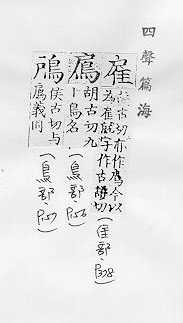 四聲篇海
雇 侯古切亦作鳸今以
為雇賃字作古護切
(隹部、P.308)
鳸 胡古切九
丨鳥名
(鳥部、P.156)
侯古切与
鳸義同
(鳥部、P.157)